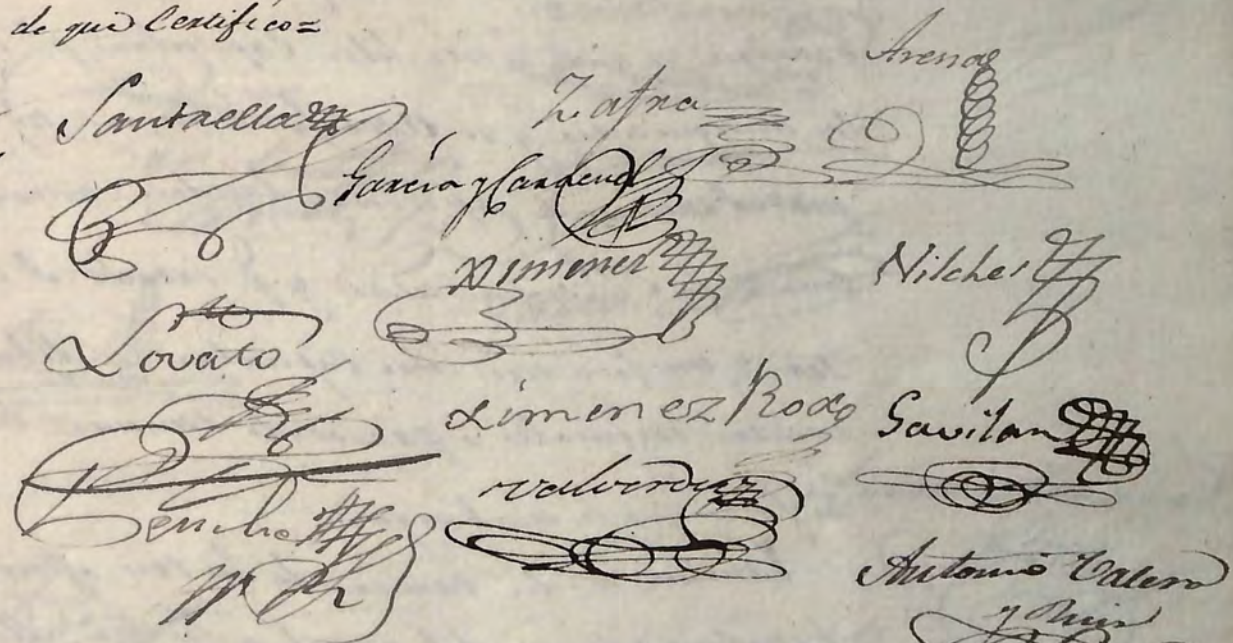 de que Certifico=
Santaella
Zafra
Arenas
García y Cardenal
Ximenez
Nilches
Lovato
Ximenez Roxo
Gavilan
Valverde
Antonio Valero
y Ruiz